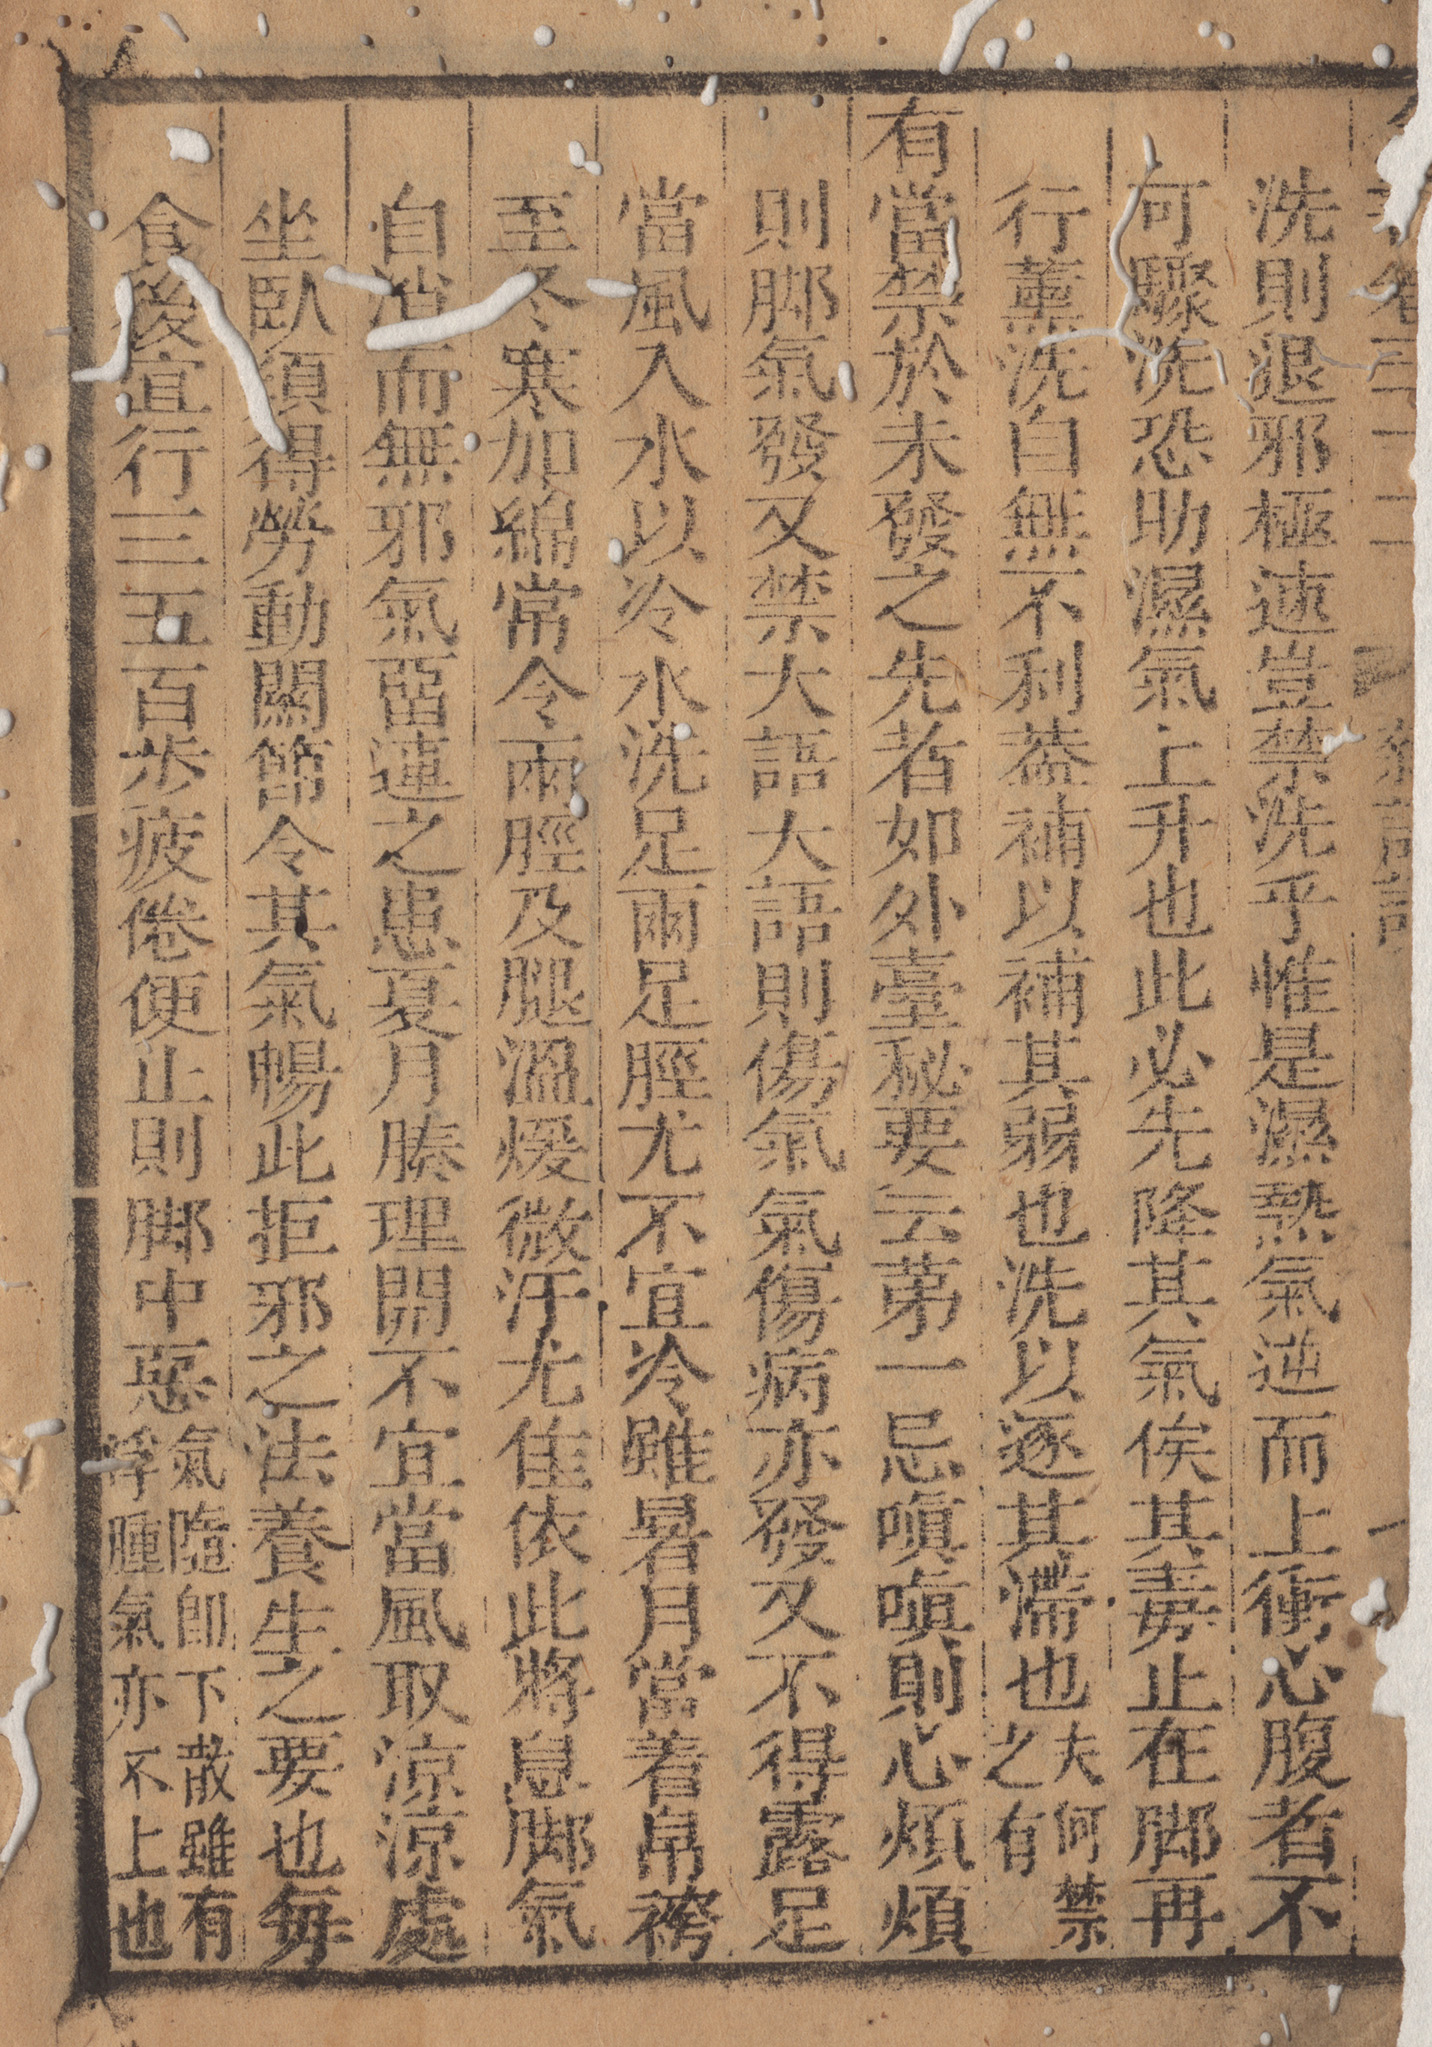 洗則退邪極速豈禁洗乎惟是濕熱氣逆而上衝心腹者不
可驟洗恐助濕氣上升也此必先降其氣俟其毒止在脚再
行薰洗自無不利蓋補以補其弱也洗以逐其滯也夫何禁
之有
有當禁於未發之先者如外臺秘要云苐一忌嗔嗔則心煩煩
則脚氣發又禁大語大語則傷氣氣傷病亦發又不得露足
當風入水以冷水洗足兩足脛尤不宜冷雖暑月當着帛袴
至冬寒加綿常令兩脛及腿溫煖微汗尤佳依此將息脚氣
自消而無邪氣畱連之患夏月腠理開不宜當風取涼涼處
坐臥須得勞動關節令其氣暢此拒邪之法養生之要也每
食後宜行三五百步疲倦便止則脚中惡氣隨卽下散雖有
浮腫氣亦不上也